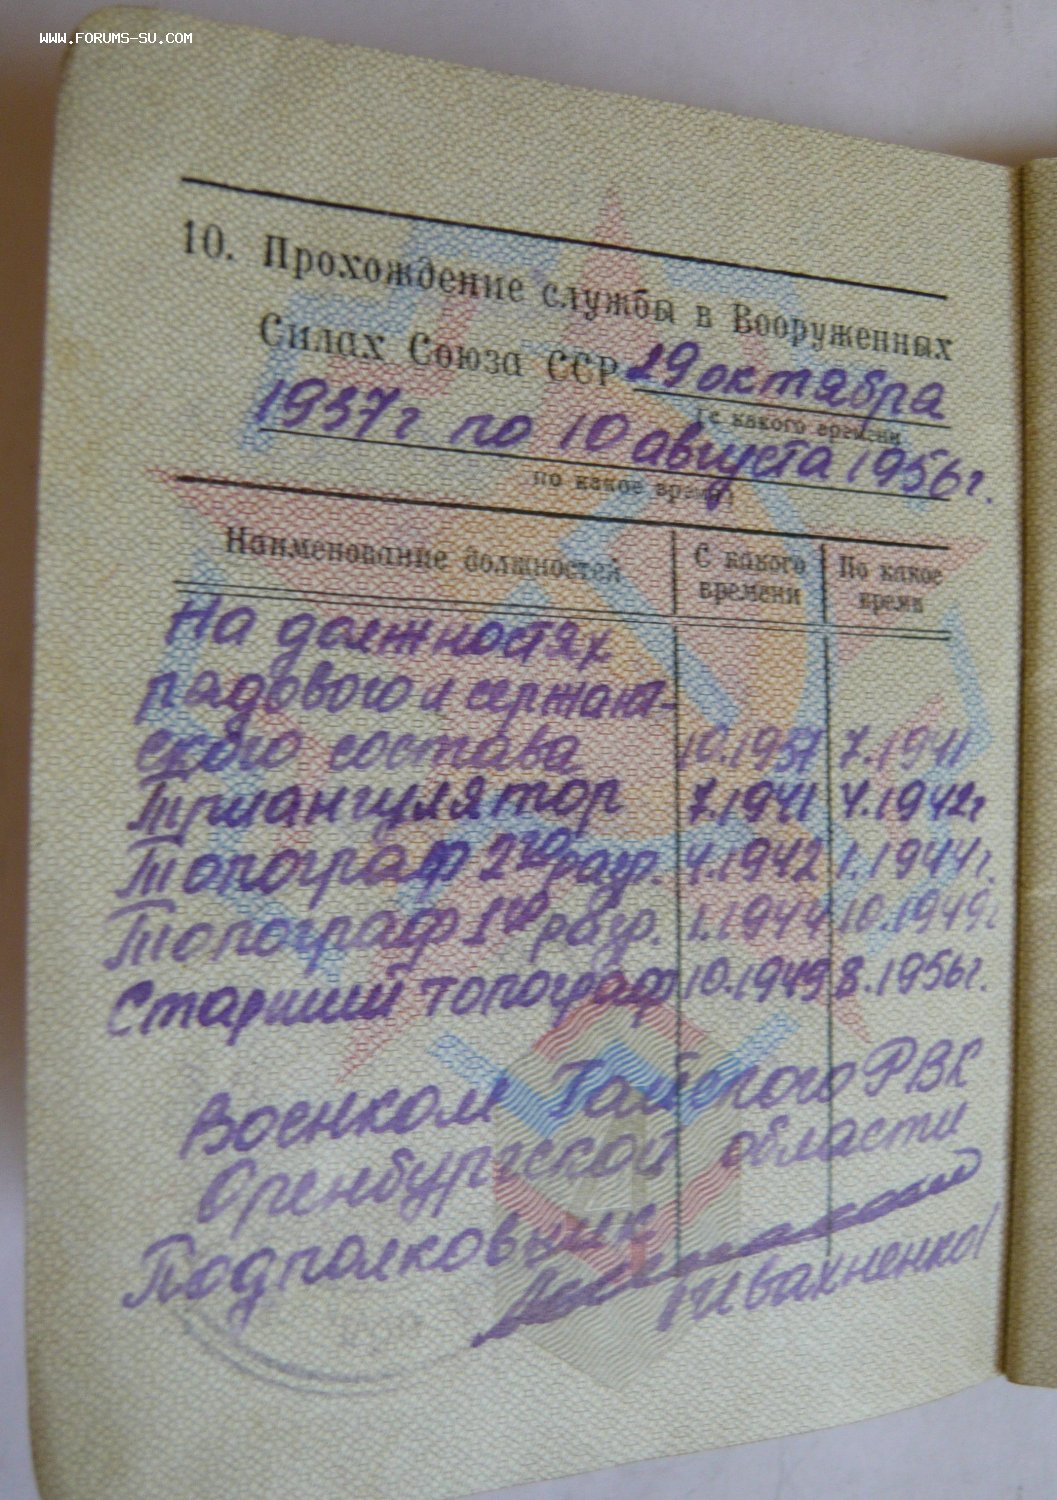 WWW.FORUMS-SU.COM
10. Прохождение службы в Вооруженных
Силах Союза ССР 29 октября
(с какого времени
1937г по 10 августа 1956г.
по какое время)
Наименование должностей С какого времени По какое время
На должностях
рядового и сержант-
ского состава 10.1937 7.1941
Триангулятор 7.1941 4.1942г
Топограф 2го разр. 4.1942 1.1944г.
Топограф 1го разр. 1.1944 10.1949г
Старший топограф 10.1949 8.1956г.
Военком Гайского РВК
Оренбургской области
Подполковник
/Ивахненко/